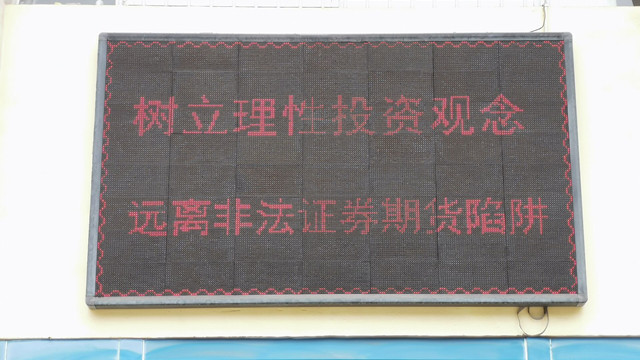 树立理性投资观念
远离非法证券期货陷阱